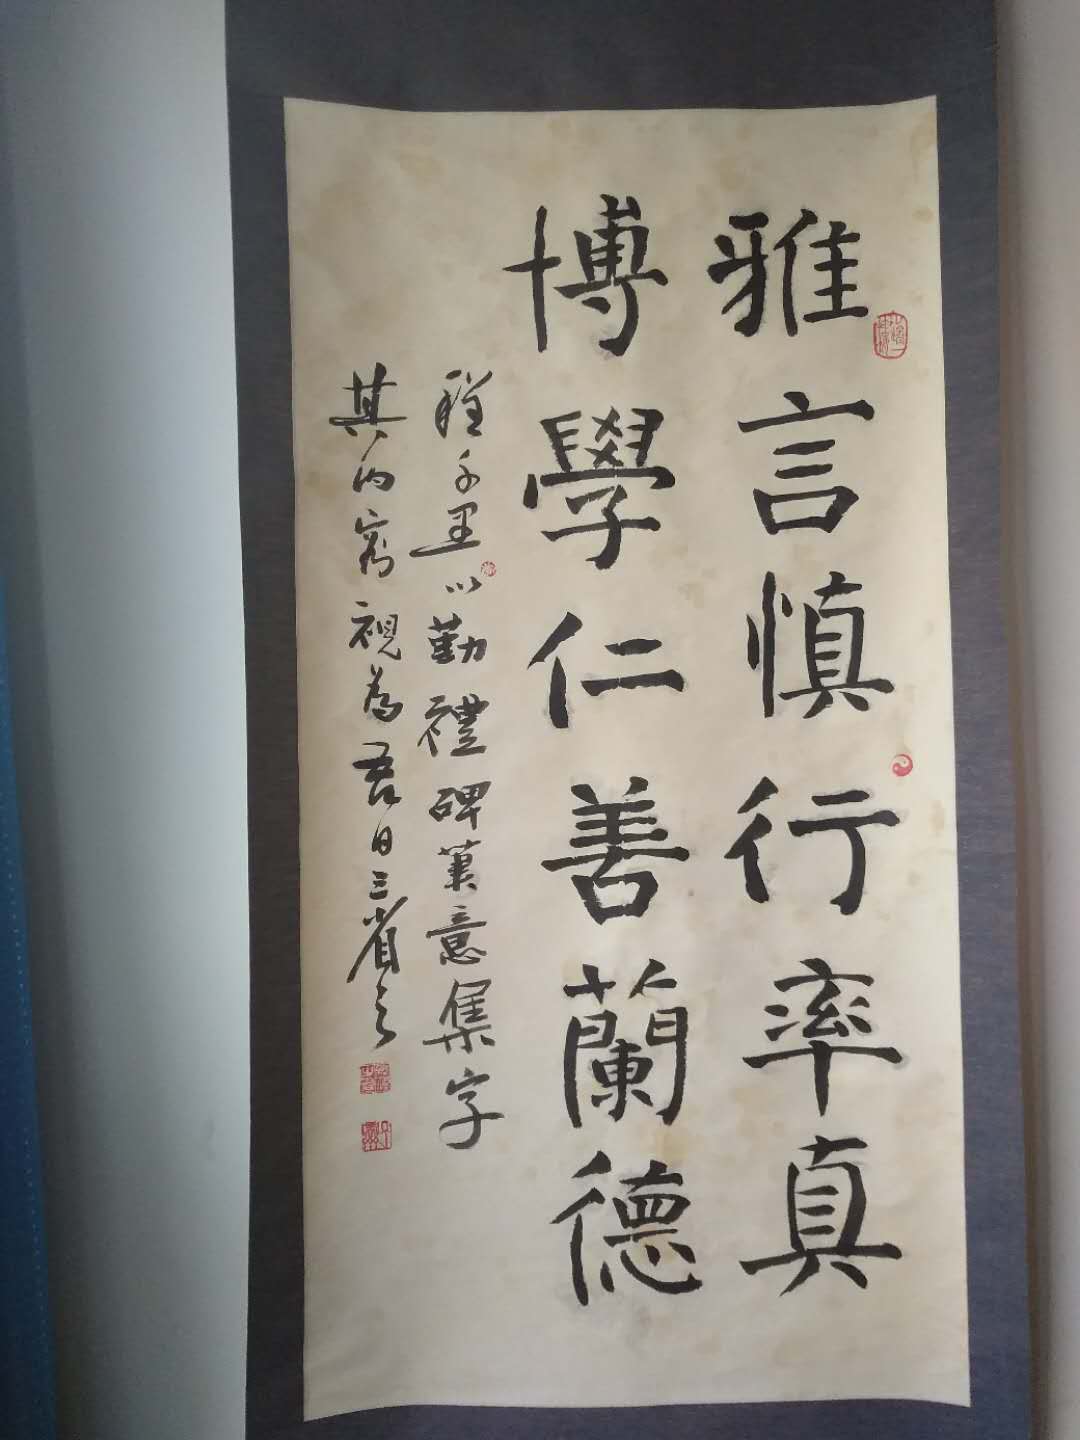 雅言慎行率真
博學仁善蘭德
程千里以勤禮碑筆意集字
其內容視為吾日三省之